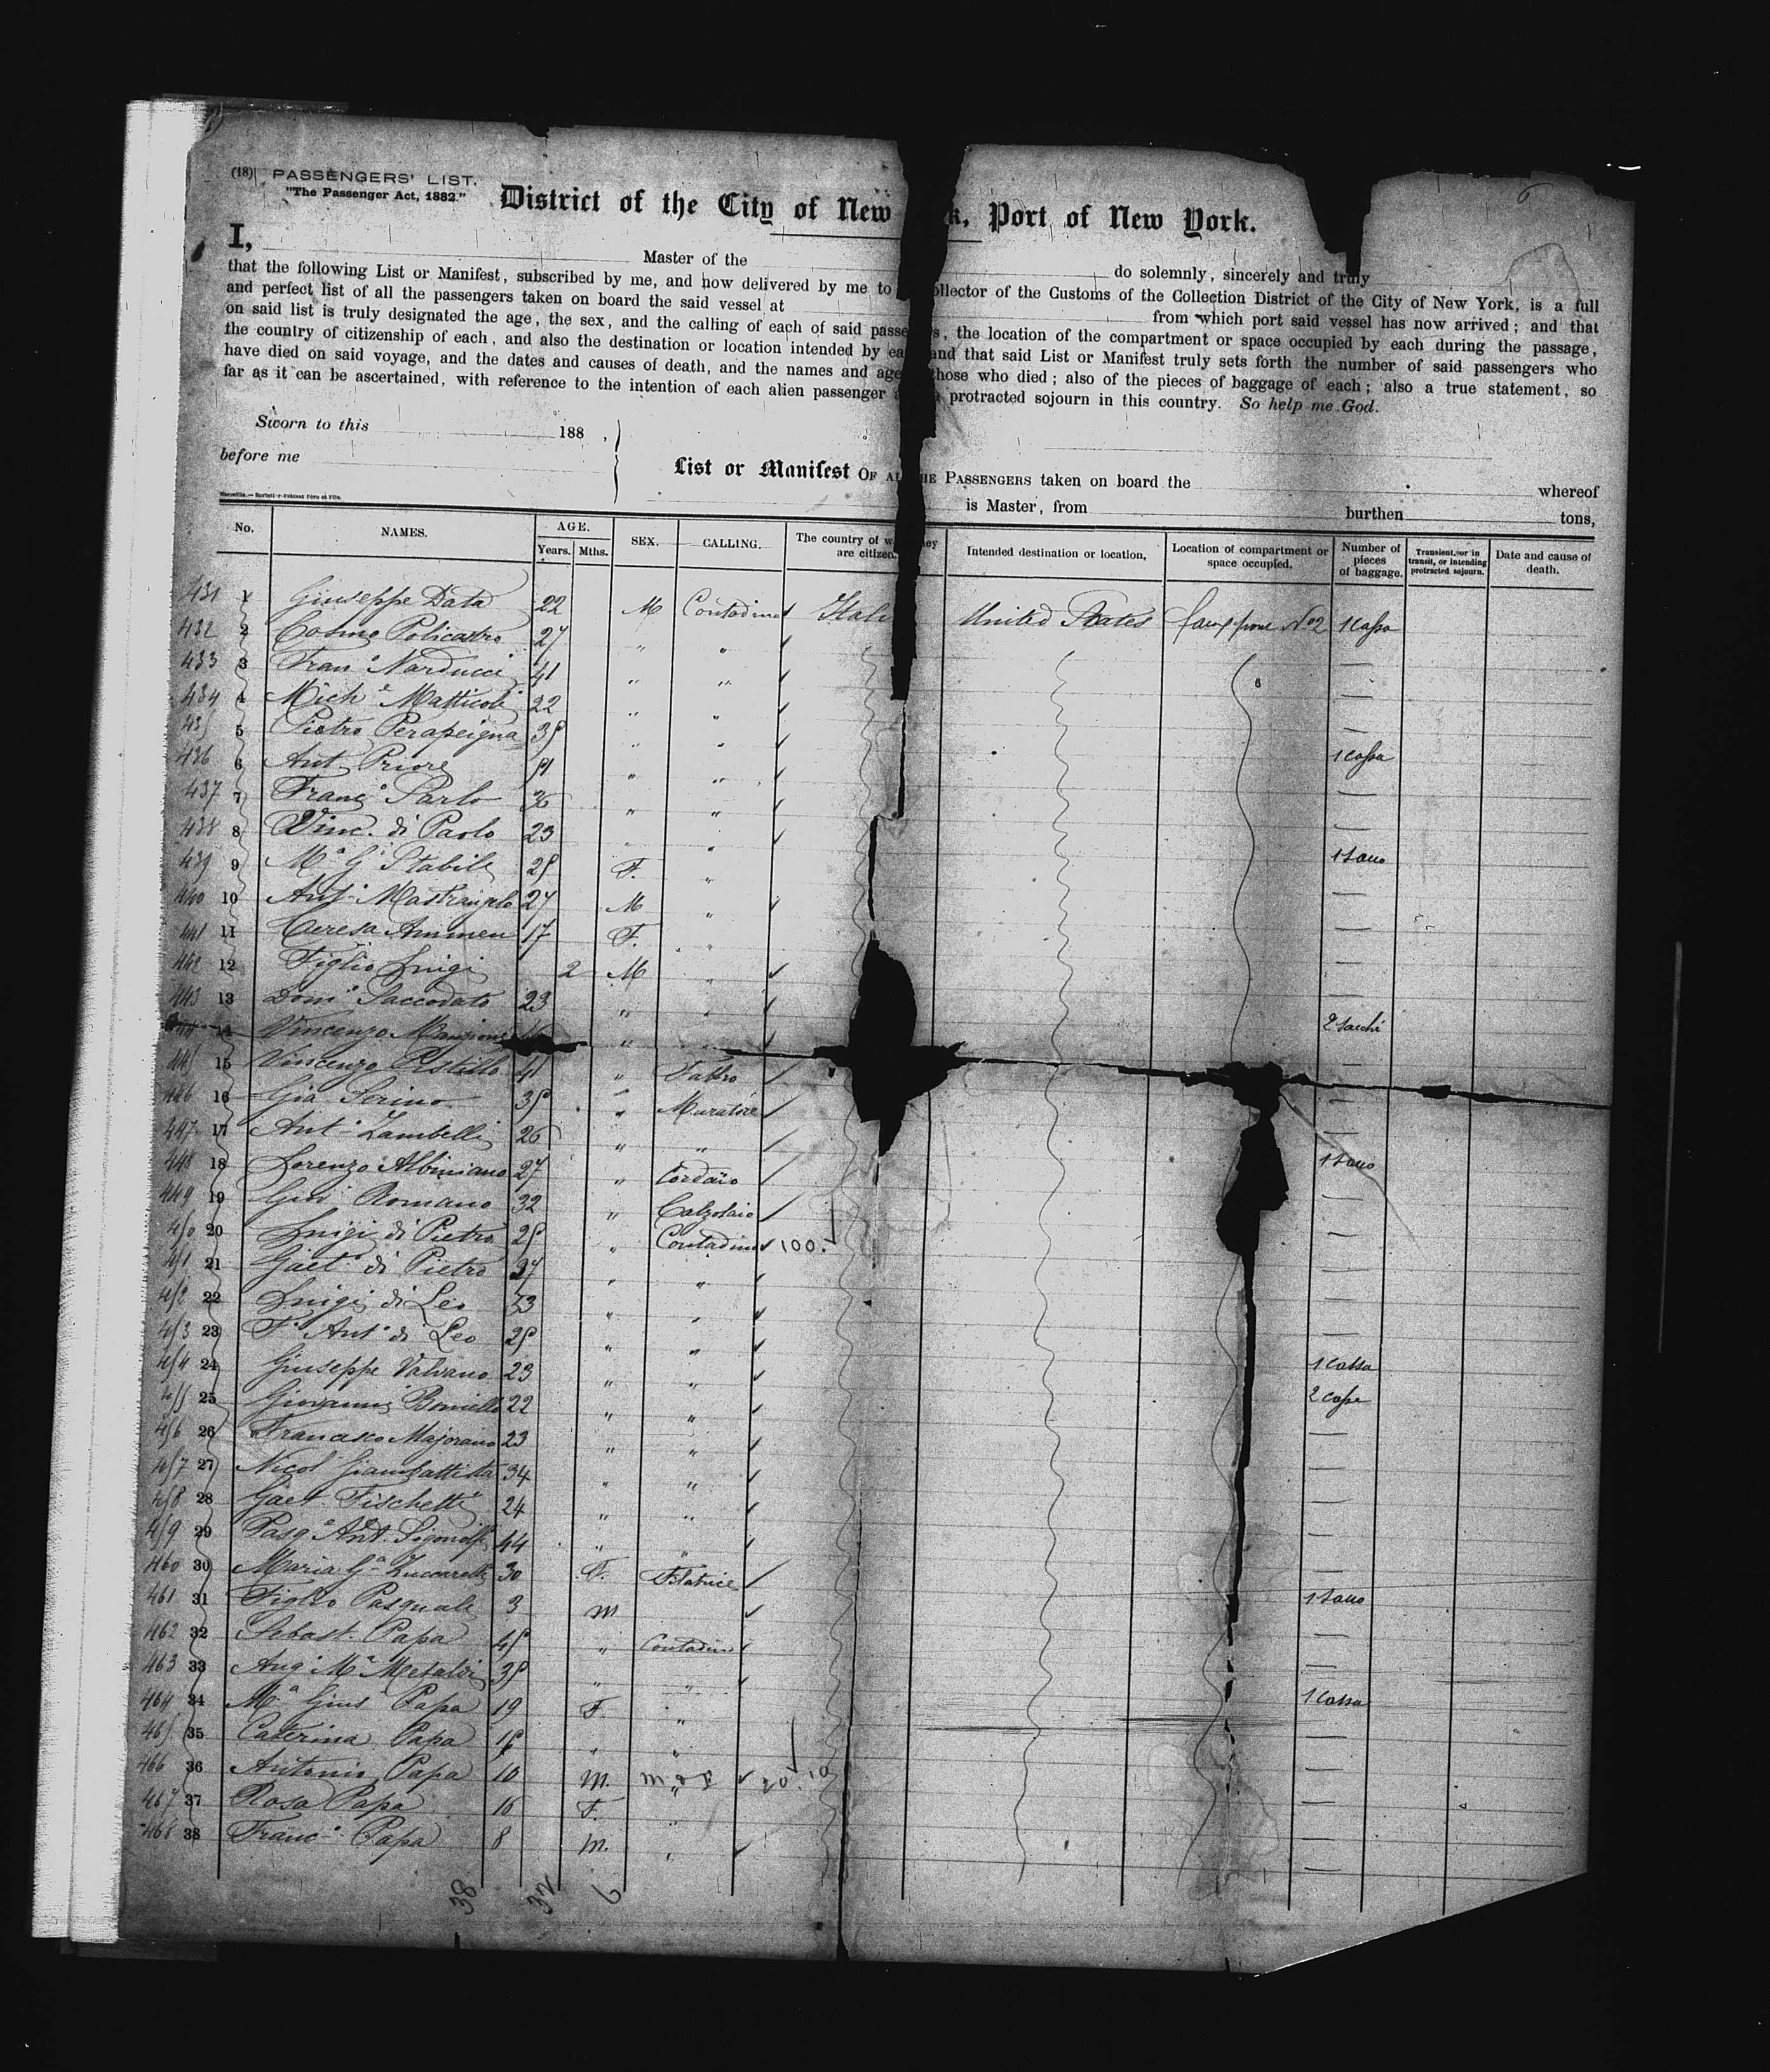 (18) PASSENGERS' LIST.
"The Passenger Act, 1882."
District of the City of New k, Port of New York.
I, Master of the do solemnly, sincerely and truly
that the following List or Manifest, subscribed by me, and now delivered by me to ollector of the Customs of the Collection District of the City of New York, is a full
and perfect list of all the passengers taken on board the said vessel at from which port said vessel has now arrived; and that
on said list is truly designated the age, the sex, and the calling of each of said passe s, the location of the compartment or space occupied by each during the passage,
the country of citizenship of each, and also the destination or location intended by ea and that said List or Manifest truly sets forth the number of said passengers who
have died on said voyage, and the dates and causes of death, and the names and age those who died; also of the pieces of baggage of each; also a true statement, so
far as it can be ascertained, with reference to the intention of each alien passenger protracted sojourn in this country. So help me God.
Sworn to this 188 ,
before me
List or Manifest OF AL HE PASSENGERS taken on board the whereof
is Master, from burthen tons,
No. NAMES. AGE. Years. Mths. SEX. CALLING. The country of w hey are citizen Intended destination or location. Location of compartment or space occupied. Number of pieces of baggage. Transient, or in transit, or intending protracted sojourn. Date and cause of death.
431 1 Giuseppe Data 22 M Contadino Itali United States No 2 1 Cassa
432 2 Cosmo Policastro 27 " "
433 3 Fran° Narducci 41 " "
434 4 Mich° 22 " "
435 5 Pietro 35 " "
436 6 Ant° Priore " " 1 cassa
437 7 Franc° Sarlo 36 " "
438 8 Vinc. di Paolo 23 " "
439 9 Ma Ga Stabile 25 F. " 1 sacco
440 10 Ant° Mastrangelo 27 M "
441 11 Teresa 17 F. "
442 12 Figlio Luigi 2 M "
443 13 Dom° Saccodato 23 " "
444 14 Vincenzo " " 2 sacchi
445 15 Vincenzo Pistillo 41 " Fabbro
446 16 Gia Serino 35 " Muratore
447 17 Ant° Zambelli 26 " "
448 18 Lorenzo Albiniano 27 " Cordaio 1 sacco
449 19 Giov° Romano 32 " Calzolaio
450 20 Luigi di Pietro 25 " Contadino 100.
451 21 Gaet° di Pietro 37 " "
452 22 Luigi di Leo 53 " "
453 23 F° Ant° di Leo 25 " "
454 24 Giuseppe Valvano 23 " " 1 cassa
455 25 Giovanni Boniello 22 " " 2 casse
456 26 Francesco Majorano 23 " "
457 27 Nicol° Giambattista 34 " "
458 28 Gaet° Fischetti 24 " "
459 29 Pasq° Ant. 44 " "
460 30 Maria Ga Zuccarelli 30 F. Filatrice
461 31 Figlio Pasquale 3 M 1 sacco
462 32 Sebast. Papa 45 " Contadino
463 33 Ang° Ma 35 " "
464 34 Ma Gius Papa 19 F. " 1 cassa
465 35 Caterina Papa " "
466 36 Antonio Papa 10 M. "
467 37 Rosa Papa 16 F. "
468 38 Franc° Papa 8 M. "
38 32 6